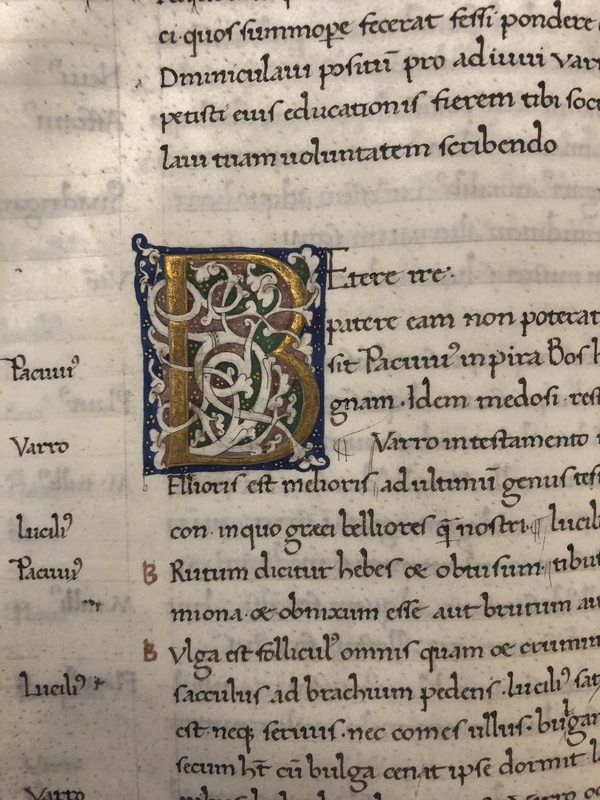 ci quos summope fecerat fessi pondere
Dminiculaui positū pro adiuui varr
petisti eius educationis fierem tibi soci
laui tuam uoluntatem scribendo
B Etere ire.
patere eam non poterat
Pacuui⁹
sit Pacuui⁹ in pira Bos h
gnam. Idem medosi. rest
Varro
Varro in testamento
Ellioris est melioris, ad ultimū genus test
Lucili⁹
con. in quo græci belliores q̄ nostri. lucili
Pacuui⁹
B Rutum dicitur hebes œ obtusum. tibut
miona. œ obnixum esse aut brutum au
B Vlga est follicul⁹ omnis quam œ crumin
Lucili⁹
sacculus ad brachium pedens. lucili⁹ sat
est. neq; seruus. nec comes ullus. bulgam
secum ht̄ cū bulga cenat ipse dormit la
Varro